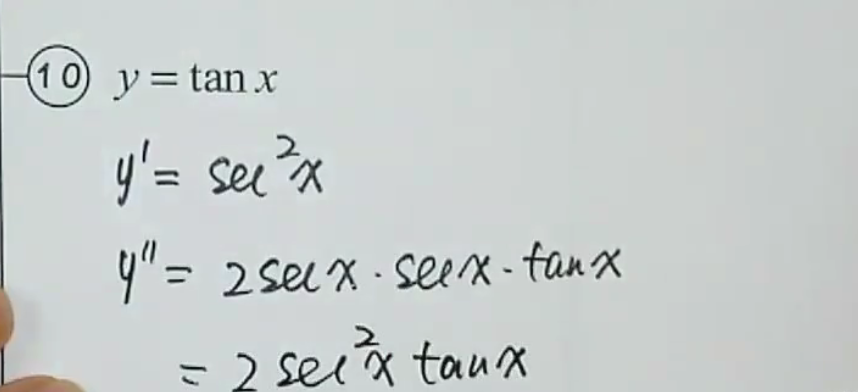 ⑩ y = tan x
y' = sec²x
y'' = 2 sec x · sec x · tan x
= 2 sec²x tan x